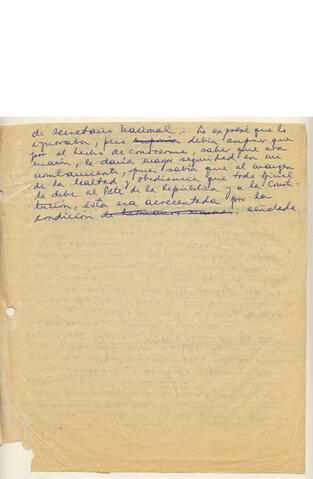 de Secretario Nacional.- Le expresé que lo
ignoraba, pero suponía debía suponer que
por el hecho de conocerme, saber que era
masón, le daría mayor seguridad en mi
nombramiento, pues sabía que al margen
de la lealtad, obediencia que todo
le debe al Pdte de la República y a la Consti-
tución, ésta era acrecentada por la
condición de hermanos masones. señalada